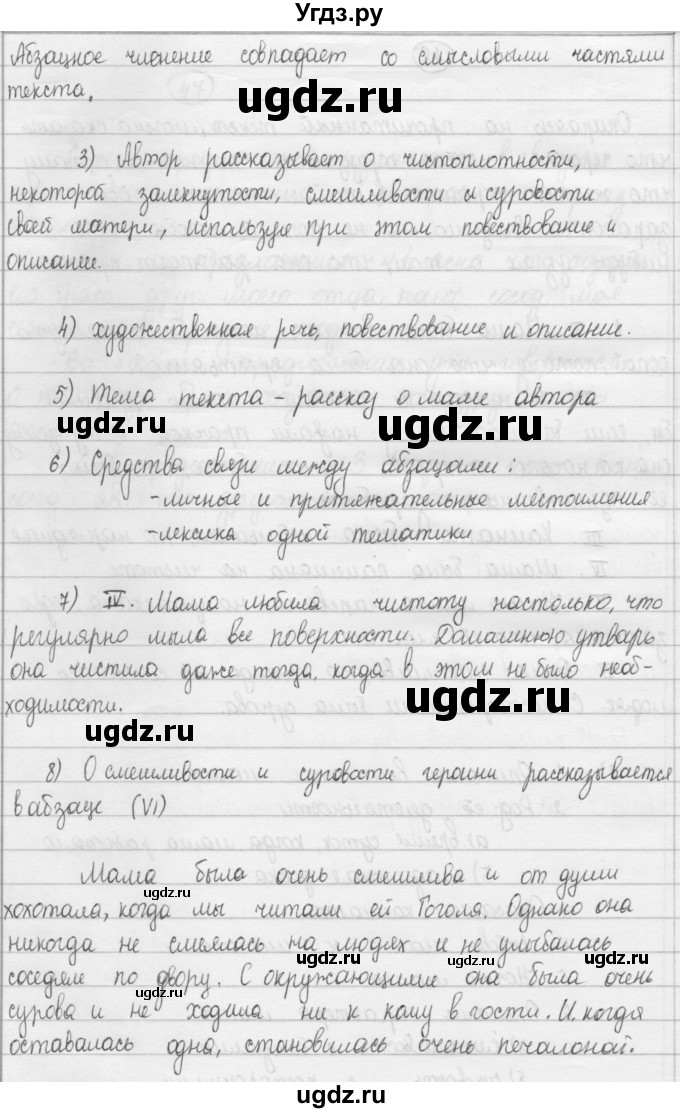 Угдз.ру
Абзацное членение совпадает со смысловыми частями
текста.
ugdz.ru
3) Автор рассказывает о чистоплотности,
некоторой замкнутости, смешливости и суровости
своей матери, используя при этом повествование и
описание.
ugdz.ru
4) художественная речь, повествование и описание.
5) Тема текста – рассказ о маме автора
ugdz.ru ugdz.ru
6) Средства связи между абзацами:
-личные и притяжательные местоимения
-лексика одной тематики
ugdz.ru ugdz.ru
7) IV. Мама любила чистоту настолько, что
регулярно мыла все поверхности. Домашнюю утварь
она чистила даже тогда, когда в этом не было необ-
ходимости.
ugdz.ru
ugdz.ru
8) О смешливости и суровости героини рассказывается
в абзаце (VI)
ugdz.ru
Мама была очень смешлива и от души
ugdz.ru
хохотала, когда мы читали ей Гоголя. Однако она
никогда не смеялась на людях и не улыбалась
ugdz.ru ugdz.ru
соседям по двору. С окружающими она была очень
ugdz.ru
сурова и не ходила ни к кому в гости. И когда
оставалась одна, становилась очень печальной.
ugdz.ru ugdz.ru